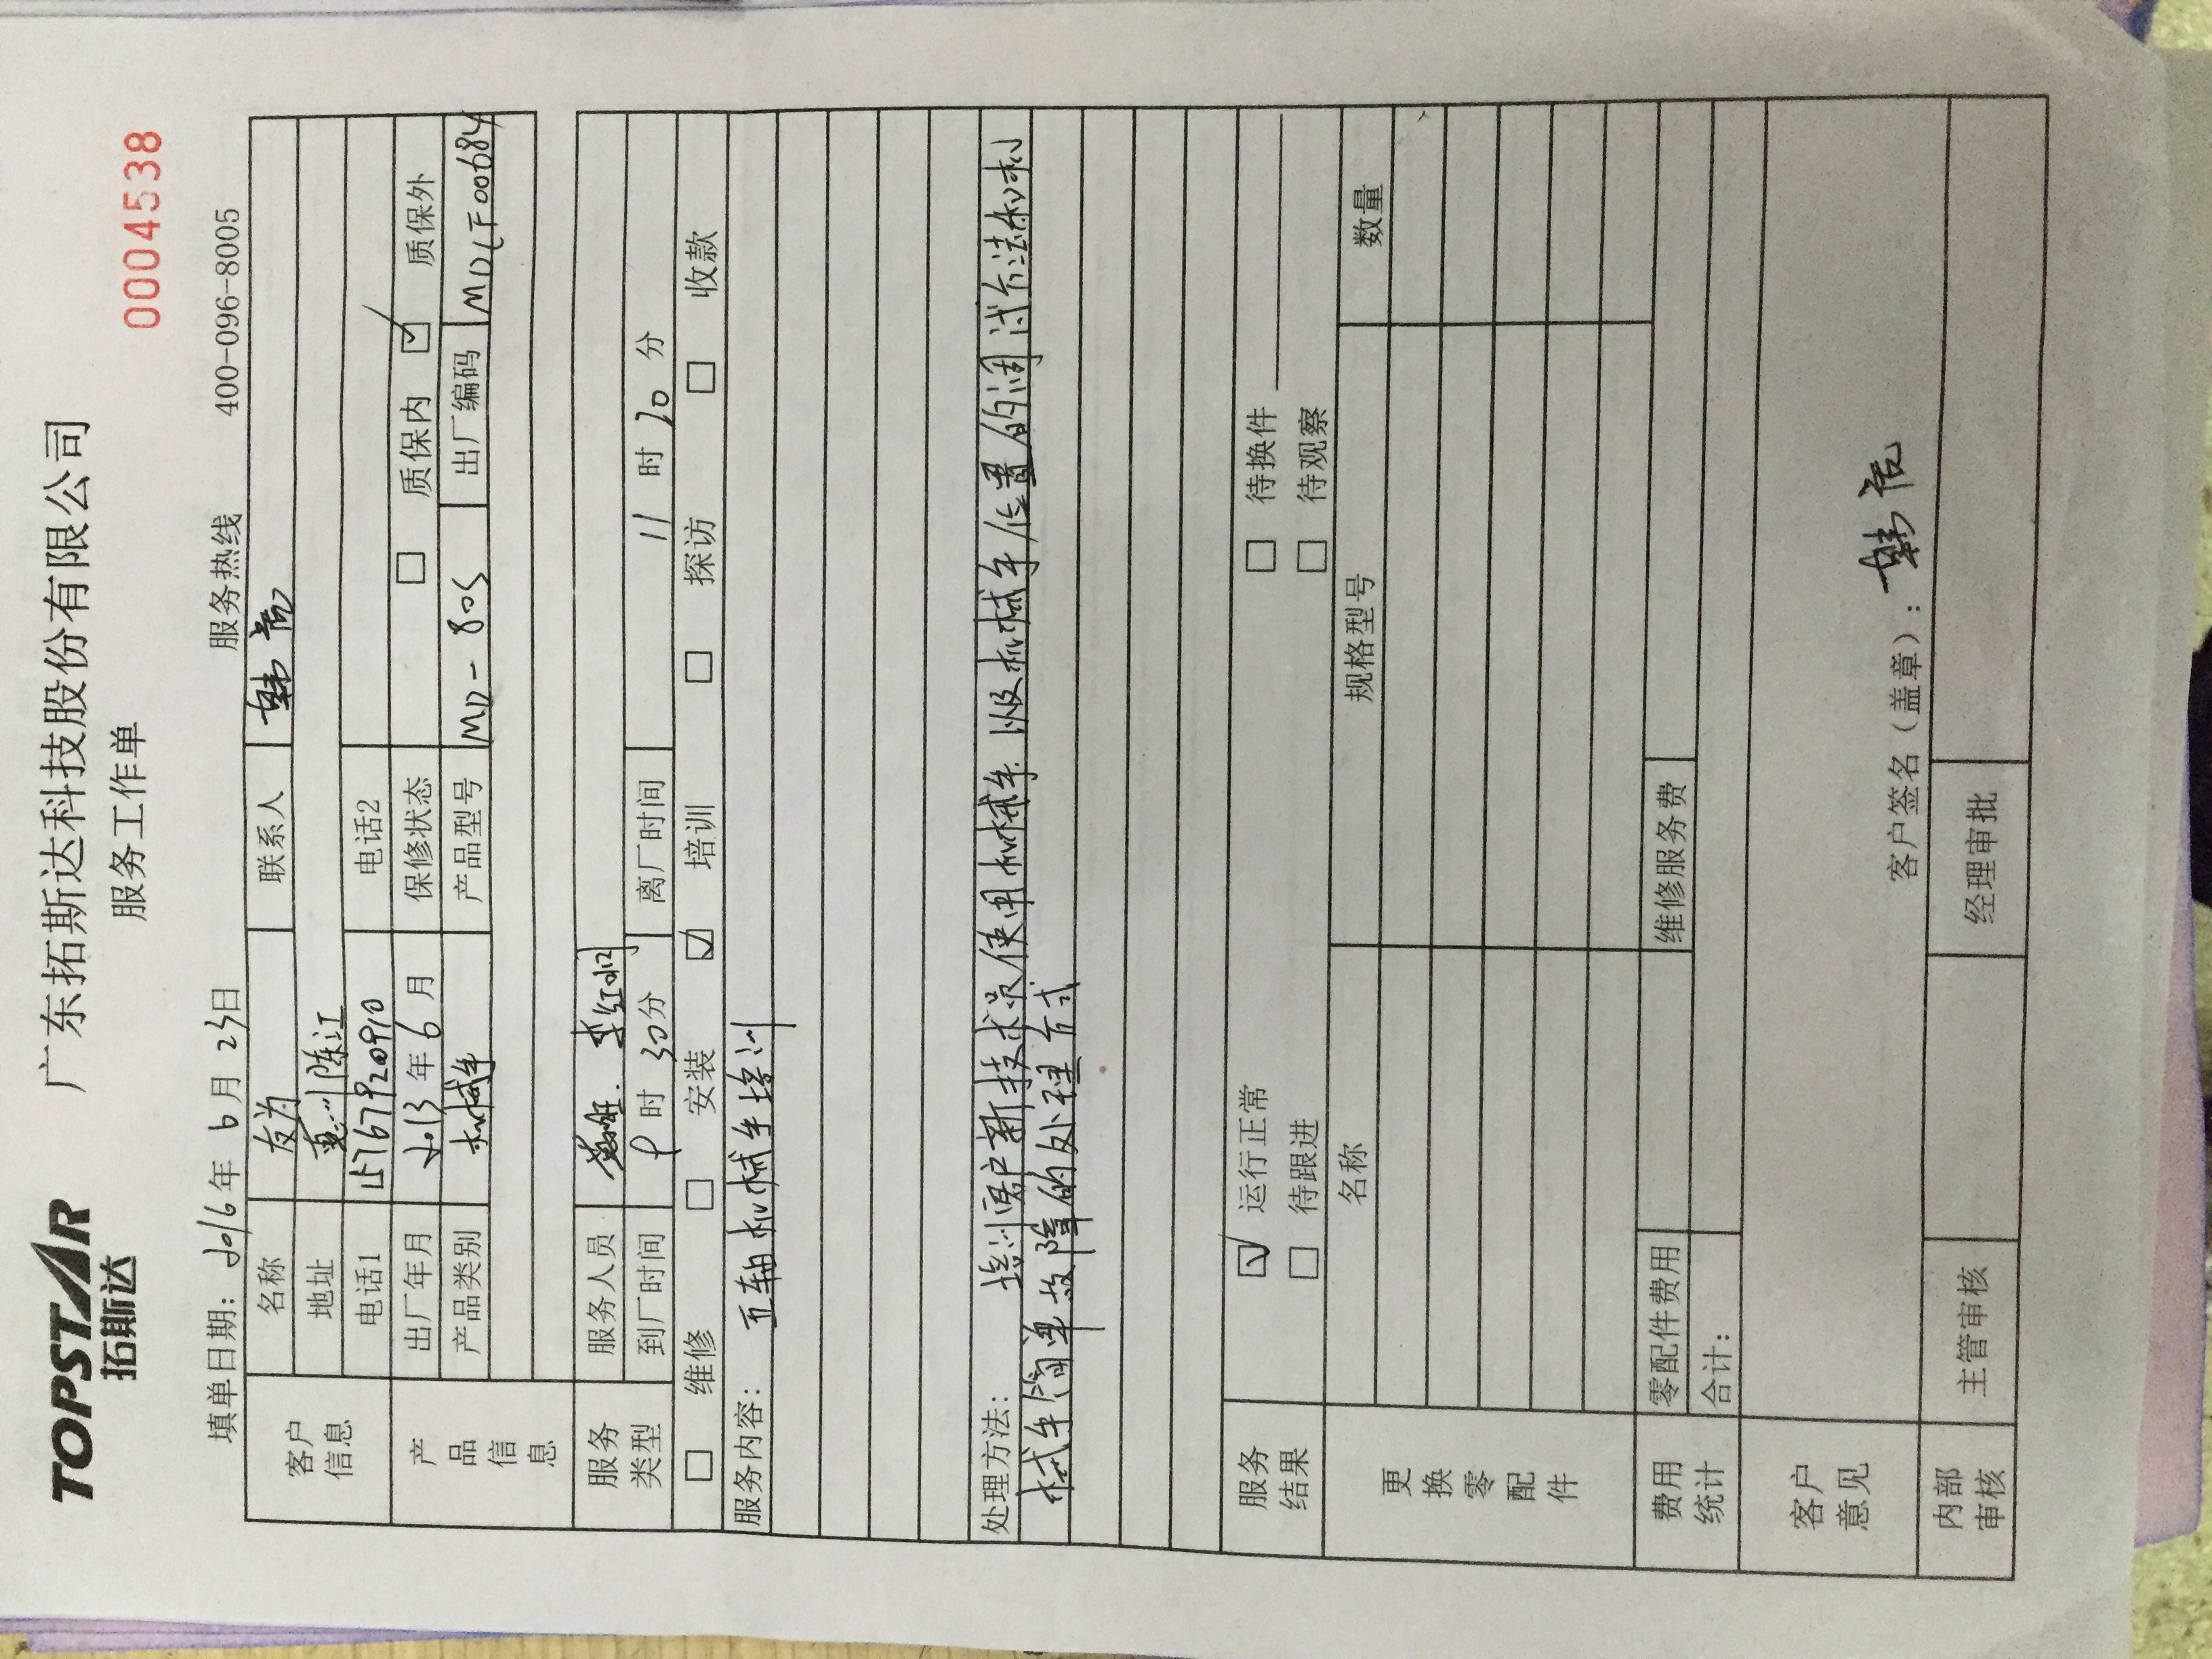 TOPSTAR
拓斯达
广东拓斯达科技股份有限公司
服务工作单
0004538
填单日期：2016年6月23日 服务热线 400-096-8005
客户信息
名称 友为 联系人 韩
地址 惠州陈江
电话1 15767920910 电话2
产品信息
出厂年月 2013年6月 保修状态 □ 质保内 ☑ 质保外
产品类别 机械手 产品型号 MD-80S 出厂编码 MDLF00684
服务类型
服务人员 李红
到厂时间 9时30分 离厂时间 11时20分
□ 维修 □ 安装 ☑ 培训 □ 探访 □ 收款
服务内容： 五轴机械手培训
处理方法： 培训客户新技术员使用机械手以及机械手位置的调试方法和机
械手简单故障的处理方式
服务结果
☑ 运行正常 □ 待换件
□ 待跟进 □ 待观察
更换零配件
名称 规格型号 数量
费用统计
零配件费用 维修服务费
合计：
客户意见
客户签名（盖章）：韩
内部审核 主管审核 经理审批